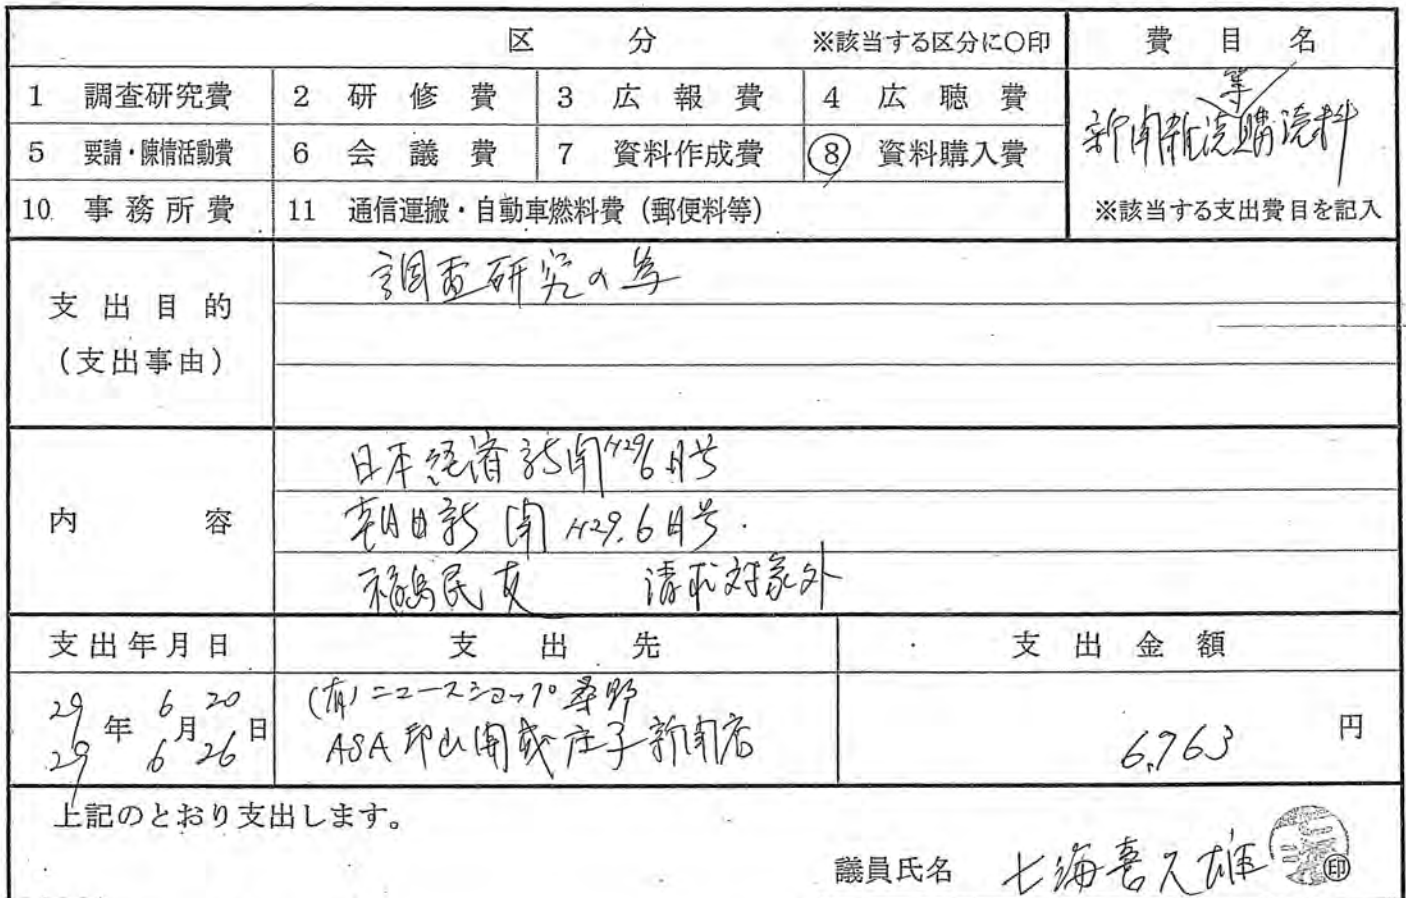 区 分 ※該当する区分に○印 費 目 名
1 調査研究費 2 研 修 費 3 広 報 費 4 広 聴 費
等
新聞雑誌購読料
5 要請・陳情活動費 6 会 議 費 7 資料作成費 ⑧ 資料購入費
10 事 務 所 費 11 通信運搬・自動車燃料費（郵便料等） ※該当する支出費目を記入
支 出 目 的
（支出事由）
調査研究の為
内 容
日本経済新聞 H29 6月号
朝日新聞 H29.6月号.
福島民友 請求対象外
支 出 年 月 日 支 出 先 支 出 金 額
29年 6月 20日
29 6 26
(有)ニュースショップ桑野
ASA郡山開成庄子新聞店
6,763 円
上記のとおり支出します。
議員氏名 七海喜久雄 印